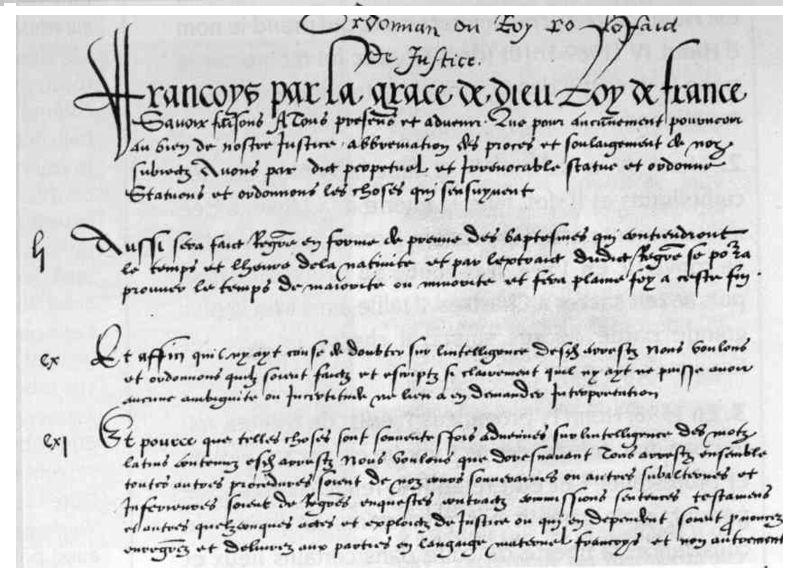 Ordonnan du Roy
De Justice.
Francoys par la grace de dieu Roy de france
Savoir faisons A Tous presens et advenir Que pour aucunement pourveoir
au bien de nostre Justice abbreviation des proces et soulaigement de noz
subiectz Avons par edict perpetuel et Irrevocable statue et ordonne
Statuons et ordonnons les choses qui sensuyvent
Aussi sera faict Regre en forme de preuve des baptesmes qui contiendront
le temps et lheure dela nativite et par lextraict dudict Regre se pora
prouver le temps de maiorite ou minorite et fera plaine foy a ceste fin
cx Et affin quil ny ayt cause de doubter sur lintelligence desd arrestz Nous voulons
et ordonnons quilz soient faictz et escriptz si clairement quil ny ayt ne puisse avoir
aucune ambiguite ou Incertitude ne lieu a en demander Interpretation
cxi Et pource que telles choses sont souventesfois advenues sur lintelligence des motz
latins contenuz esd arrestz Nous voulons que doresnavant Tous arrestz ensemble
toutes autres procedures soient de noz cours souveraines ou autres subalternes et
Inferieures soient de Regres enquestes contractz commissions sentences testamens
et autres quelzconques actes et exploictz de Justice ou qui en dependent soient prononcez
enregrez et delivrez aux parties en langaige maternel francoys et non autrement